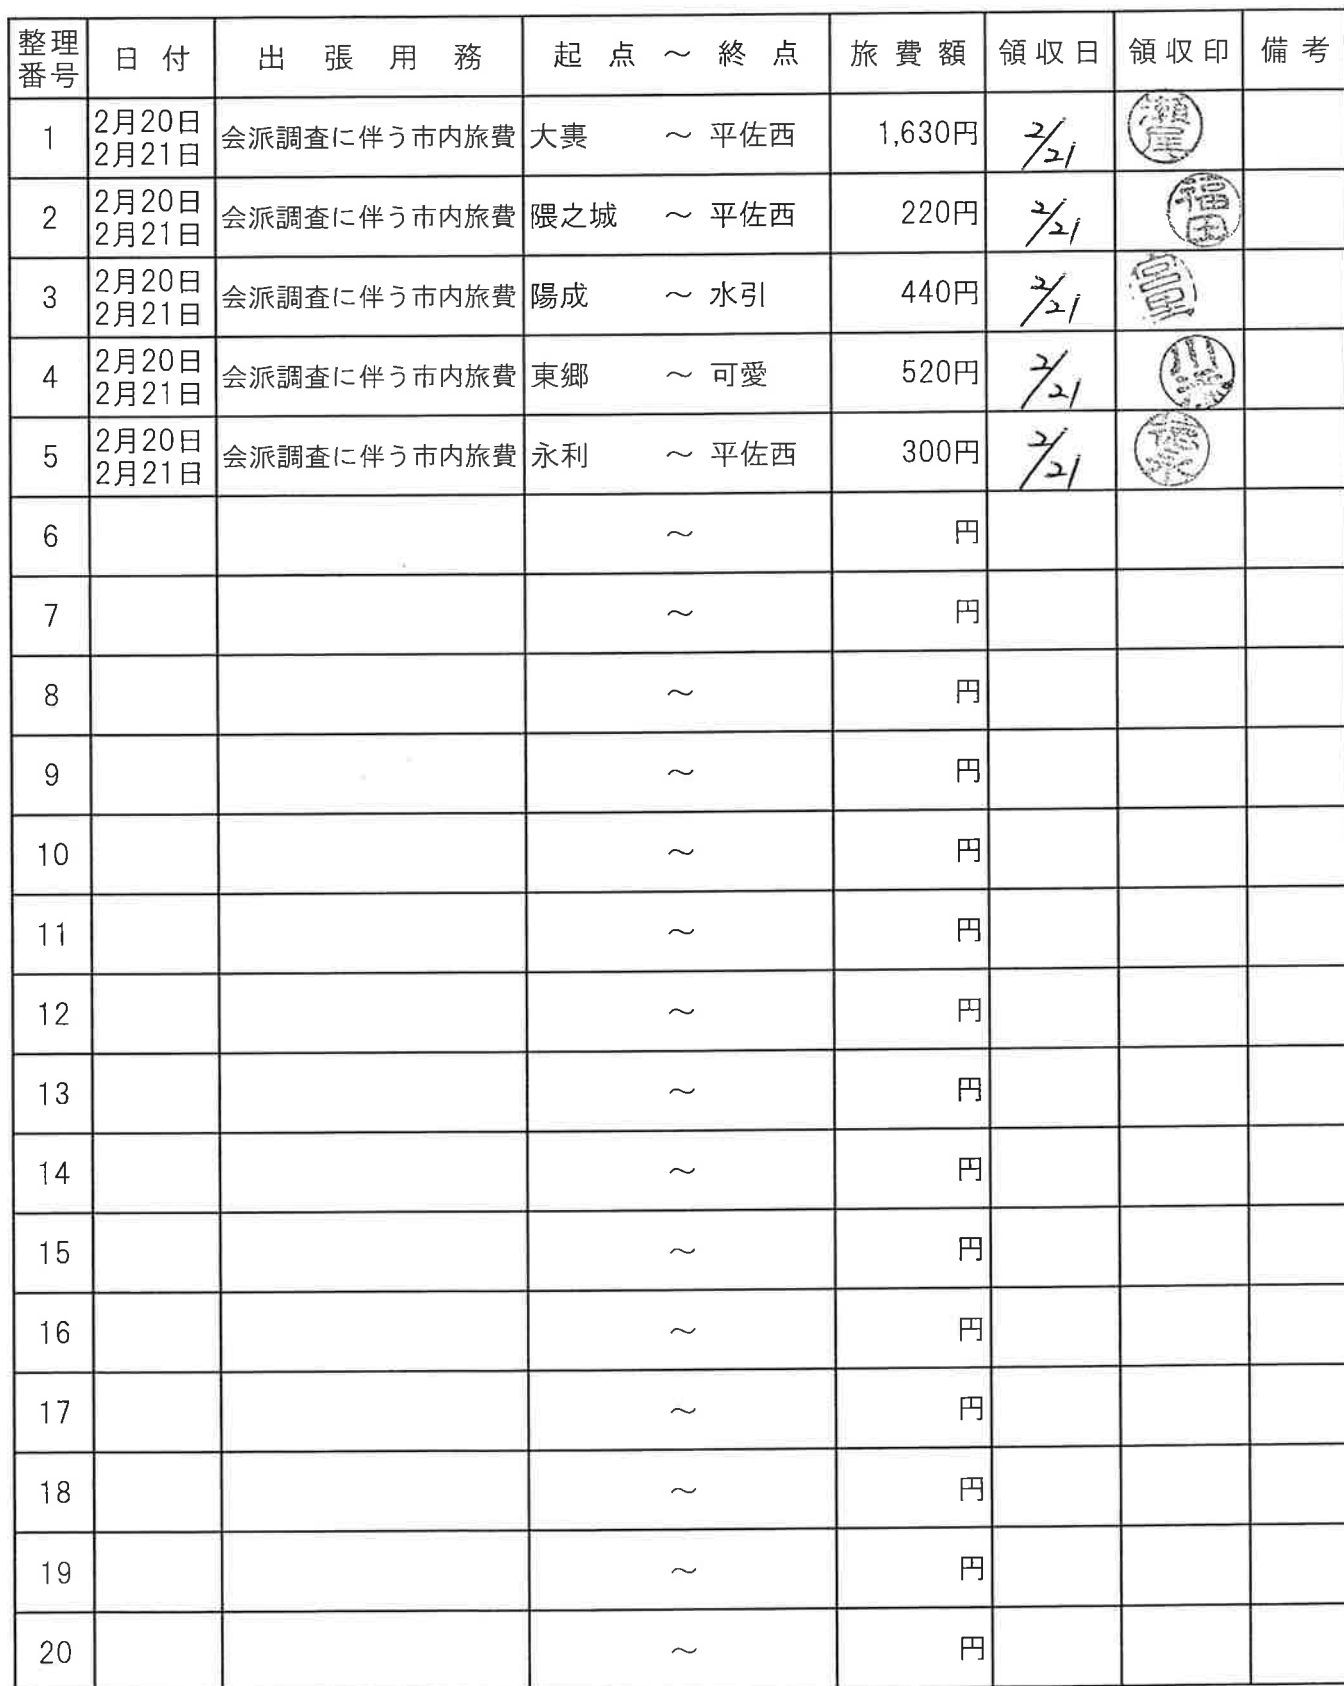 整理番号 日付 出張用務 起点 ～ 終点 旅費額 領収日 領収印 備考
1 2月20日 2月21日 会派調査に伴う市内旅費 大裏 ～ 平佐西 1,630円 2/21 瀬尾
2 2月20日 2月21日 会派調査に伴う市内旅費 隈之城 ～ 平佐西 220円 2/21 福田
3 2月20日 2月21日 会派調査に伴う市内旅費 陽成 ～ 水引 440円 2/21
4 2月20日 2月21日 会派調査に伴う市内旅費 東郷 ～ 可愛 520円 2/21
5 2月20日 2月21日 会派調査に伴う市内旅費 永利 ～ 平佐西 300円 2/21
6 ～ 円
7 ～ 円
8 ～ 円
9 ～ 円
10 ～ 円
11 ～ 円
12 ～ 円
13 ～ 円
14 ～ 円
15 ～ 円
16 ～ 円
17 ～ 円
18 ～ 円
19 ～ 円
20 ～ 円